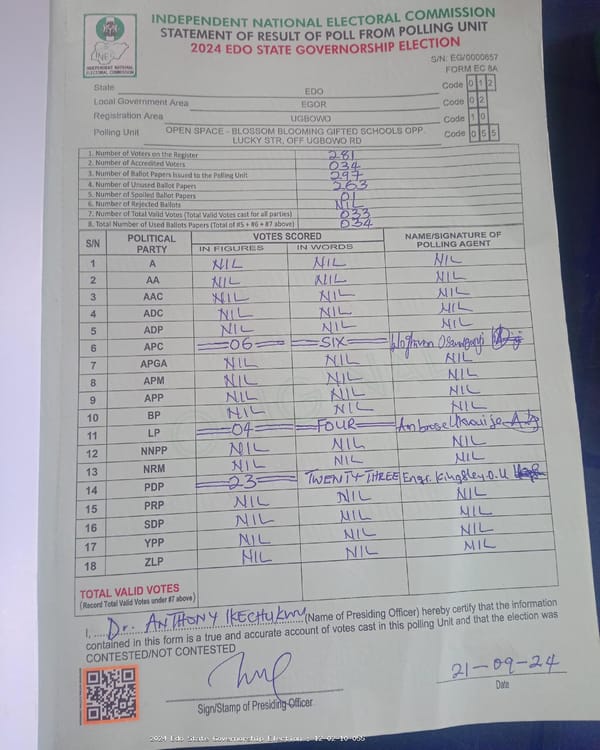 INDEPENDENT NATIONAL ELECTORAL COMMISSION
STATEMENT OF RESULT OF POLL FROM POLLING UNIT
2024 EDO STATE GOVERNORSHIP ELECTION
INEC
INDEPENDENT NATIONAL ELECTORAL COMMISSION
S/N: EG/0000657
FORM EC 8A
State EDO Code 0 1 2
Local Government Area EGOR Code 0 2
Registration Area UGBOWO Code 1 0
Polling Unit OPEN SPACE - BLOSSOM BLOOMING GIFTED SCHOOLS OPP. LUCKY STR, OFF UGBOWO RD Code 0 5 5
1. Number of Voters on the Register 281
2. Number of Accredited Voters 034
3. Number of Ballot Papers Issued to the Polling Unit 297
4. Number of Unused Ballot Papers 263
5. Number of Spoiled Ballot Papers 01
6. Number of Rejected Ballots NIL
7. Number of Total Valid Votes (Total Valid Votes cast for all parties) 033
8. Total Number of Used Ballots Papers (Total of #5 + #6 + #7 above) 034
S/N POLITICAL PARTY VOTES SCORED NAME/SIGNATURE OF POLLING AGENT
IN FIGURES IN WORDS
1 A NIL NIL NIL
2 AA NIL NIL NIL
3 AAC NIL NIL NIL
4 ADC NIL NIL NIL
5 ADP NIL NIL NIL
6 APC 06 SIX
7 APGA NIL NIL NIL
8 APM NIL NIL NIL
9 APP NIL NIL NIL
10 BP NIL NIL NIL
11 LP 04 FOUR Ambrose
12 NNPP NIL NIL NIL
13 NRM NIL NIL NIL
14 PDP 23 TWENTY THREE Engr. Kingsley O.U
15 PRP NIL NIL NIL
16 SDP NIL NIL NIL
17 YPP NIL NIL NIL
18 ZLP NIL NIL NIL
TOTAL VALID VOTES
(Record Total Valid Votes under #7 above)
I, Dr. ANTHONY IKECHUKWU (Name of Presiding Officer) hereby certify that the information
contained in this form is a true and accurate account of votes cast in this polling Unit and that the election was
CONTESTED/NOT CONTESTED
21-09-24
Sign/Stamp of Presiding Officer Date
2024 Edo State Governorship Election : 12-02-10-055